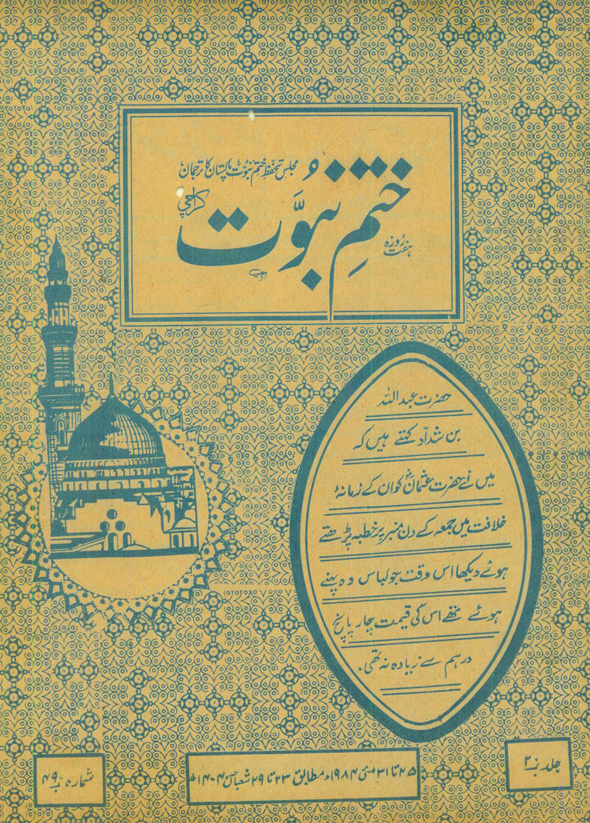 مجلس تحفظ ختم نبوت پاکستان کا ترجمان
ہفت روزہ
ختم نبوّت
کراچی
حضرت عبداللہ
بن شداد کہتے ہیں کہ
میں نے حضرت عثمانؓ کو ان کے زمانۂ
خلافت میں جمعہ کے دن منبر پر خطبہ پڑھتے
ہوئے دیکھا اس وقت جو لباس وہ پہنے
ہوئے تھے اس کی قیمت چار پانچ
درہم سے زیادہ نہ تھی۔
جلد نمبر ۲
۲۵ تا ۳۱ مئی ۱۹۸۴ء مطابق ۲۳ تا ۲۹ شعبان ۱۴۰۴ھ
شمارہ نمبر ۴۹